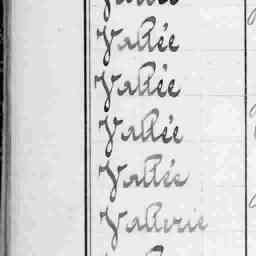 Vallée
Vallée
Vallée
Vallée
Vallerie